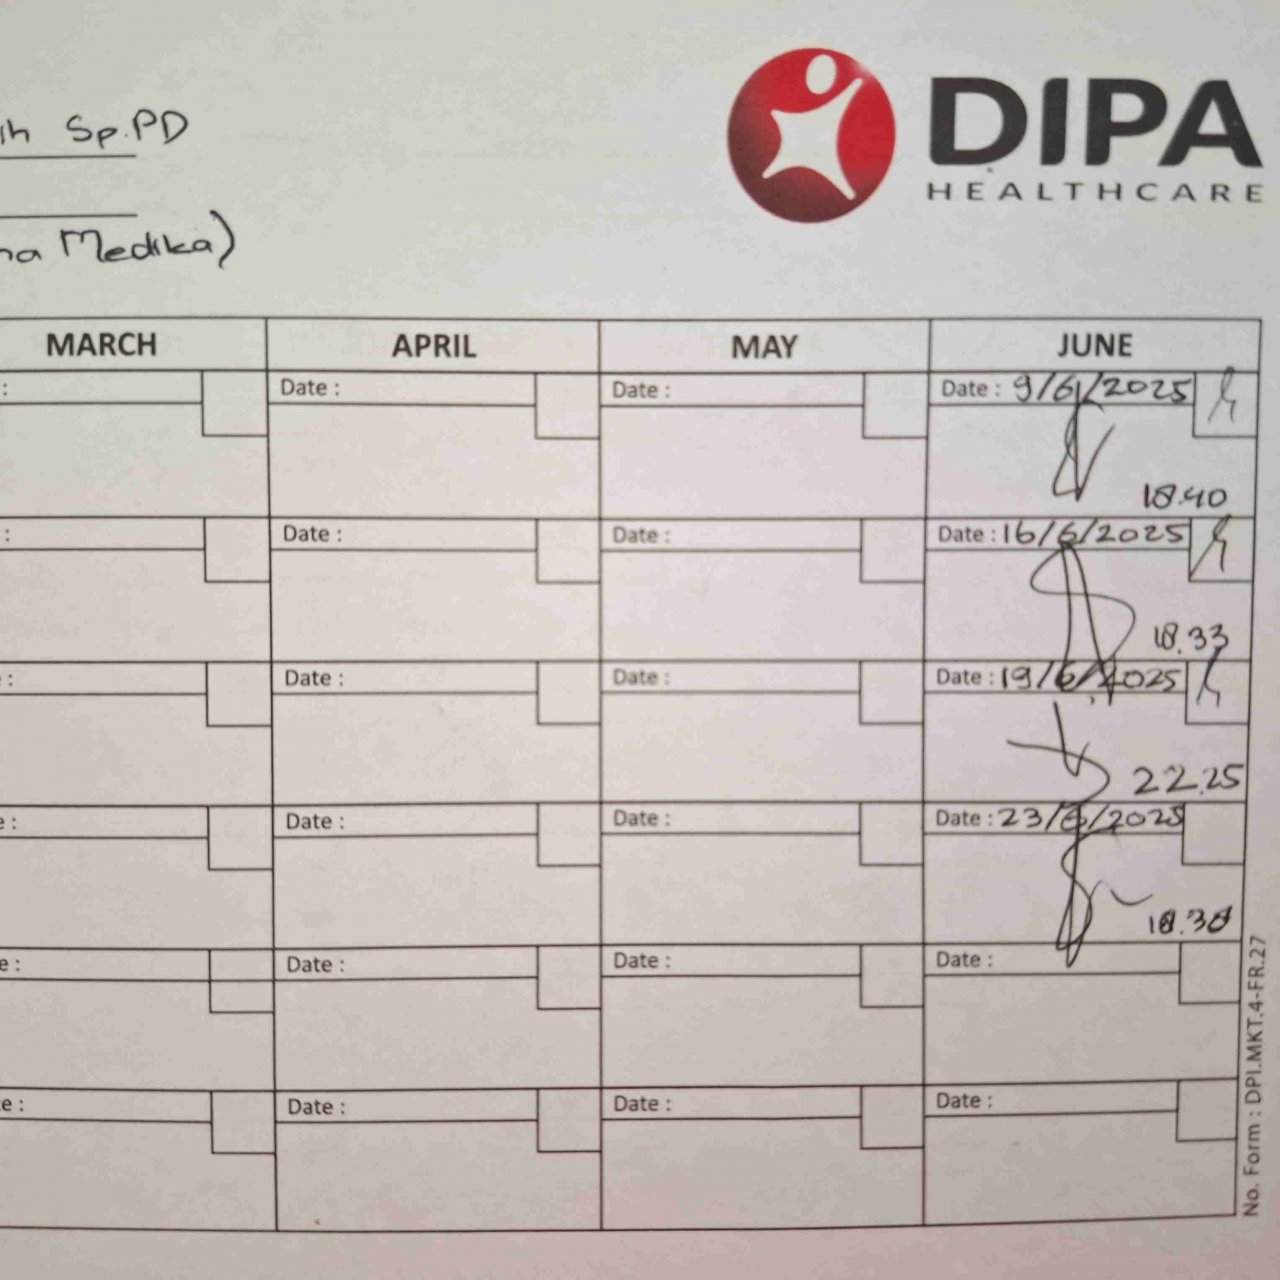 DIPA
HEALTHCARE
Sp.PD
Medika)
MARCH APRIL MAY JUNE
: Date : Date : Date : 9/6/2025
18.40
: Date : Date : Date : 16/6/2025
18.33
: Date : Date : Date : 19/6/2025
22.25
e : Date : Date : Date : 23/6/2025
18.38
e : Date : Date : Date :
e : Date : Date : Date :
No. Form : DPI.MKT.4-FR.27